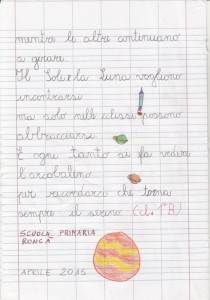 mentre le altre continuano
a girare.
Il Sole e la Luna vogliono
incontrarsi
ma solo nelle eclissi possono
abbracciarsi.
E ogni tanto si fa vedere
l'arcobaleno
per ricordarci che torna
sempre il sereno (cl. 1ª A)
SCUOLA PRIMARIA
RONCÀ
APRILE 2015